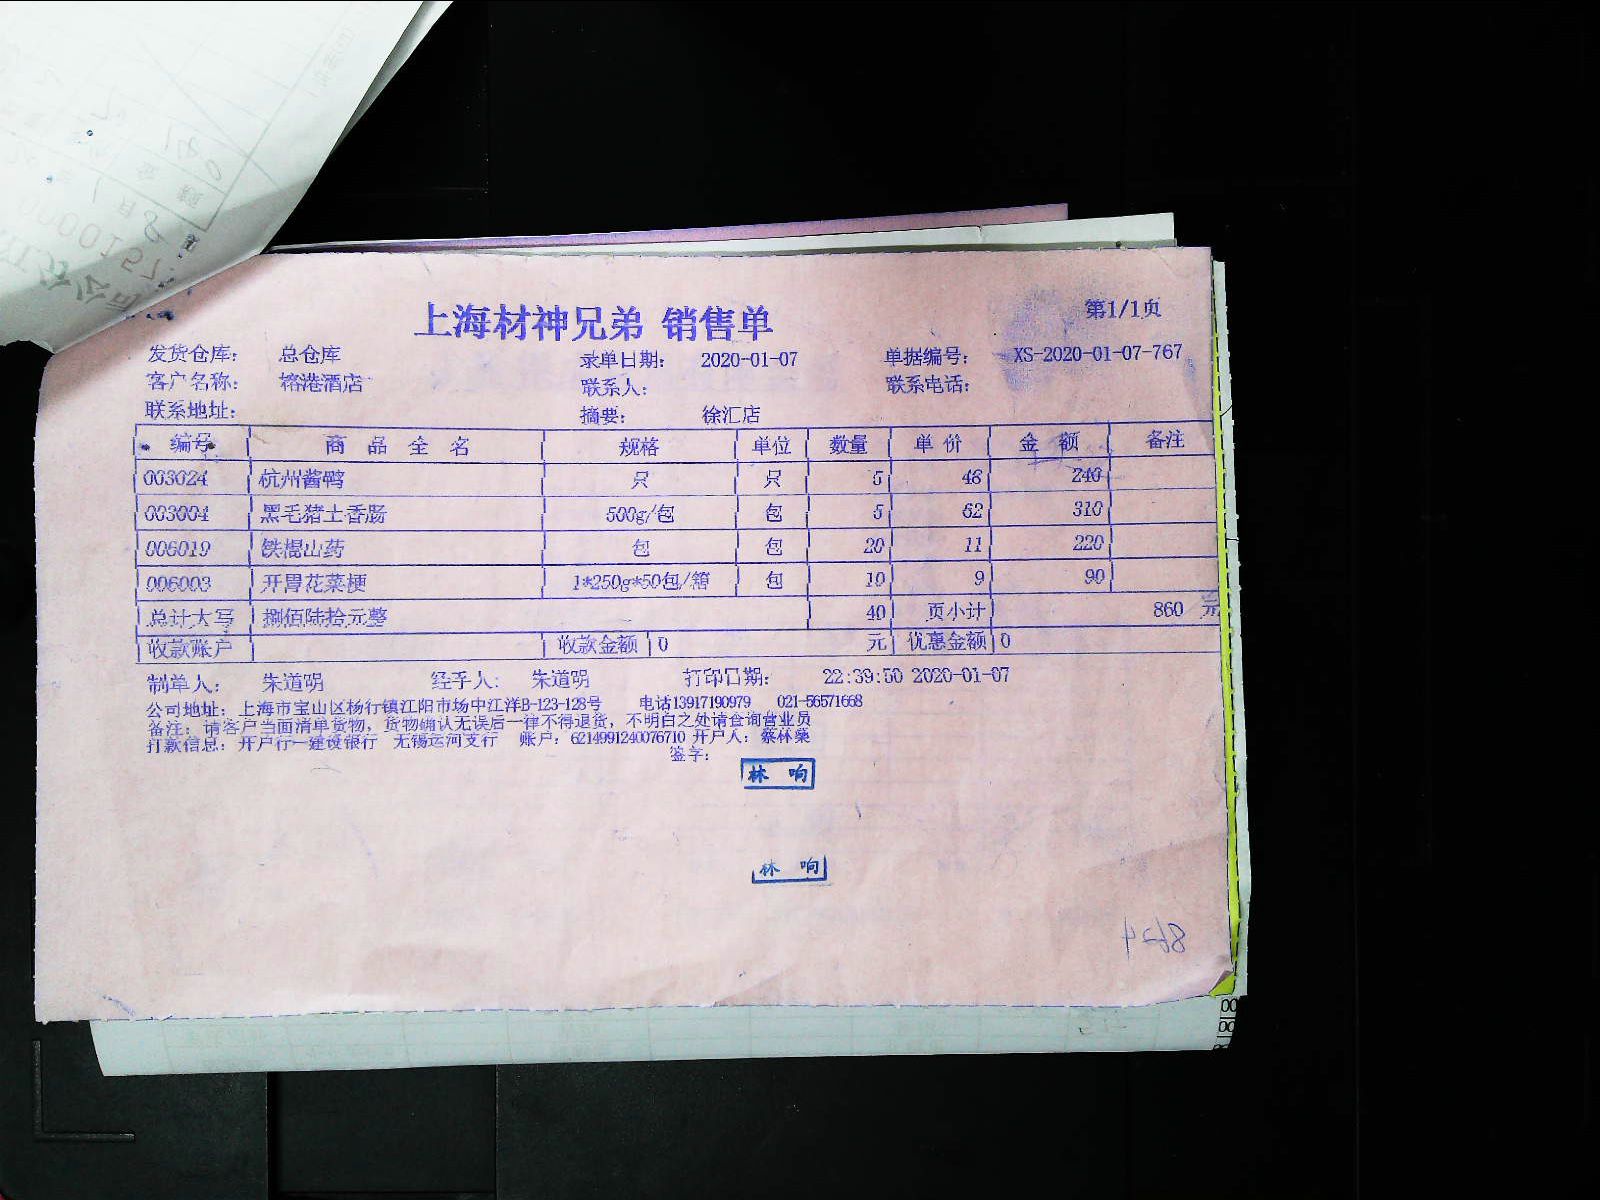 上海材神兄弟 销售单
第1/1页
发货仓库： 总仓库 录单日期： 2020-01-07 单据编号： XS-2020-01-07-767
客户名称： 榕港酒店 联系人： 联系电话：
联系地址： 摘要： 徐汇店
编号 商品全名 规格 单位 数量 单价 金额 备注
003024 杭州酱鸭 只 只 5 48 240
003004 黑毛猪土香肠 500g/包 包 5 62 310
006019 铁棍山药 包 包 20 11 220
006003 开胃花菜梗 1*250g*50包/箱 包 10 9 90
总计大写 捌佰陆拾元整 40 页小计 860 元
收款账户 收款金额 0 元 优惠金额 0
制单人： 朱道明 经手人： 朱道明 打印日期： 22:39:50 2020-01-07
公司地址：上海市宝山区杨行镇江阳市场中江洋B-123-128号 电话13917190979 021-56571668
备注：请客户当面清单货物，货物确认无误后一律不得退货，不明白之处请查询营业员
打款信息：开户行—建设银行 无锡运河支行 账户：6214991240076710 开户人：蔡林燊
签字：
林 响
林 响